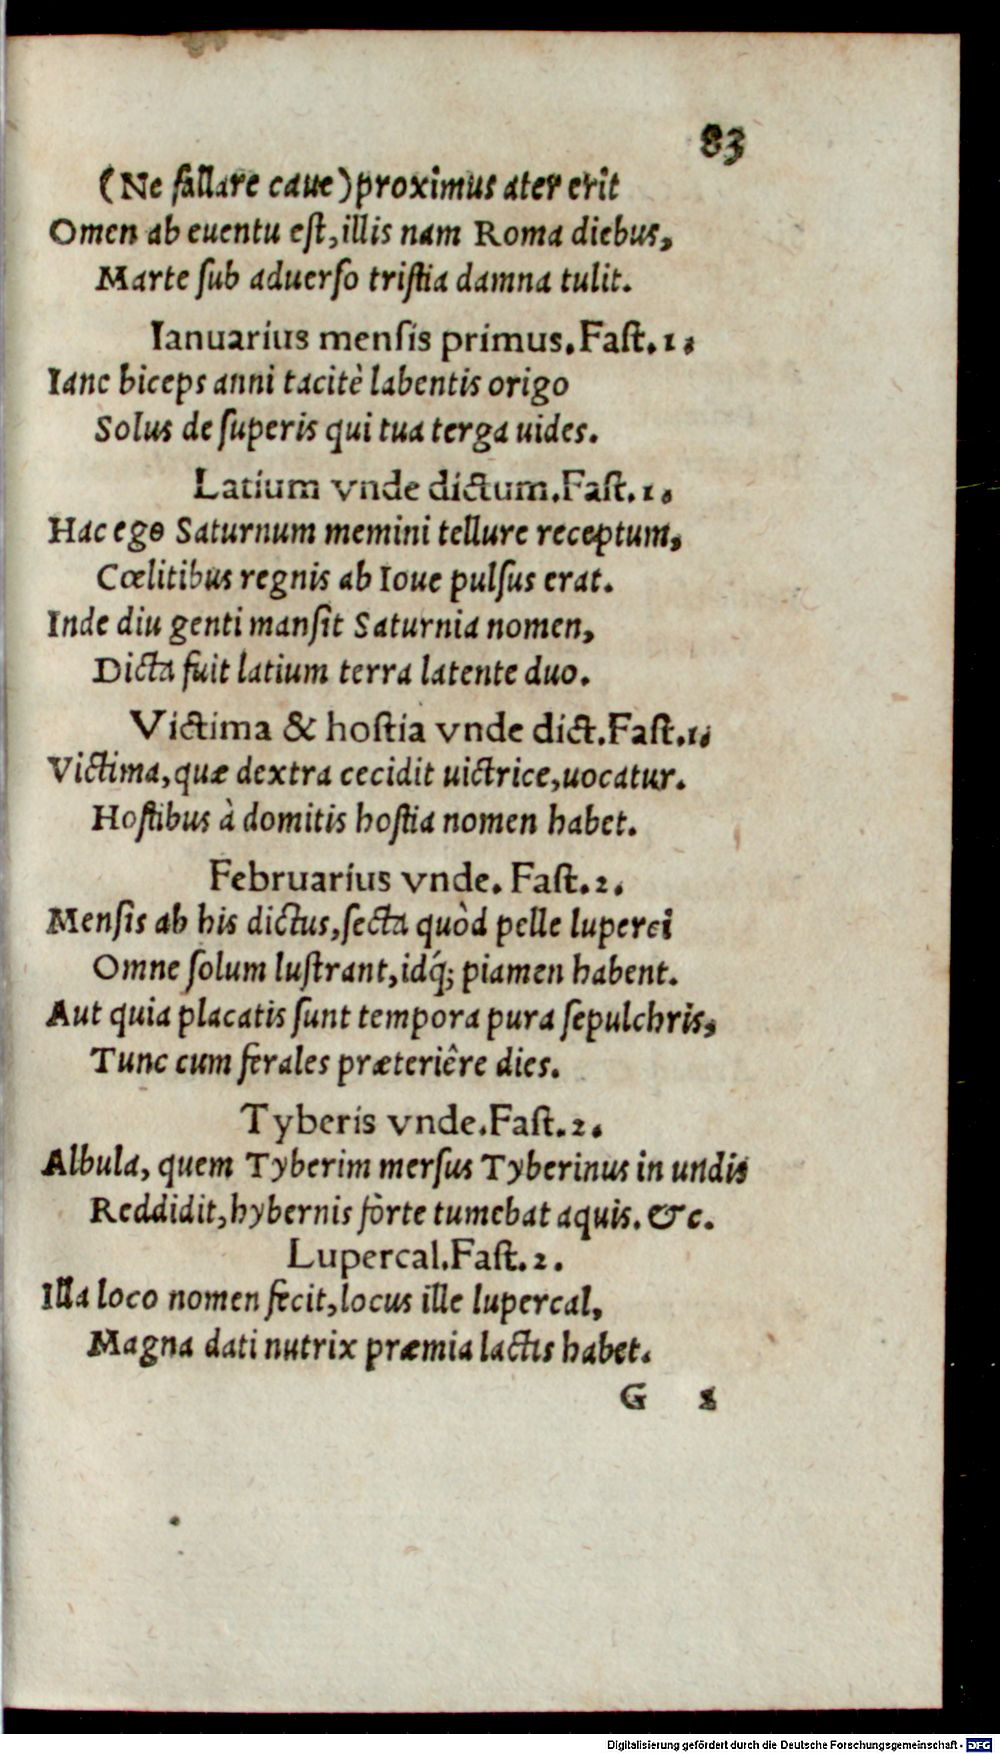 83
(Ne fallare caue)proximus ater erit
Omen ab euentu est,illis nam Roma diebus,
Marte sub aduerso tristia damna tulit.
Ianuarius mensis primus.Fast.1.
Iane biceps anni tacitè labentis origo
Solus de superis qui tua terga uides.
Latium vnde dictum.Fast.1.
Hac ego Saturnum memini tellure receptum,
Cœlitibus regnis ab Ioue pulsus erat.
Inde diu genti mansit Saturnia nomen,
Dicta fuit latium terra latente duo.
Victima & hostia vnde dict.Fast.1.
Victima,quæ dextra cecidit uictrice,uocatur.
Hostibus à domitis hostia nomen habet.
Februarius vnde. Fast.2.
Mensis ab his dictus,secta quòd pelle luperci
Omne solum lustrant,idq́; piamen habent.
Aut quia placatis sunt tempora pura sepulchris,
Tunc cum ferales præteriêre dies.
Tyberis vnde.Fast.2.
Albula, quem Tyberim mersus Tyberinus in undis
Reddidit,hybernis fòrte tumebat aquis. &c.
Lupercal.Fast.2.
Illa loco nomen fecit,locus ille lupercal,
Magna dati nutrix præmia lactis habet.
G 2
Digitalisierung gefördert durch die Deutsche Forschungsgemeinschaft - DFG